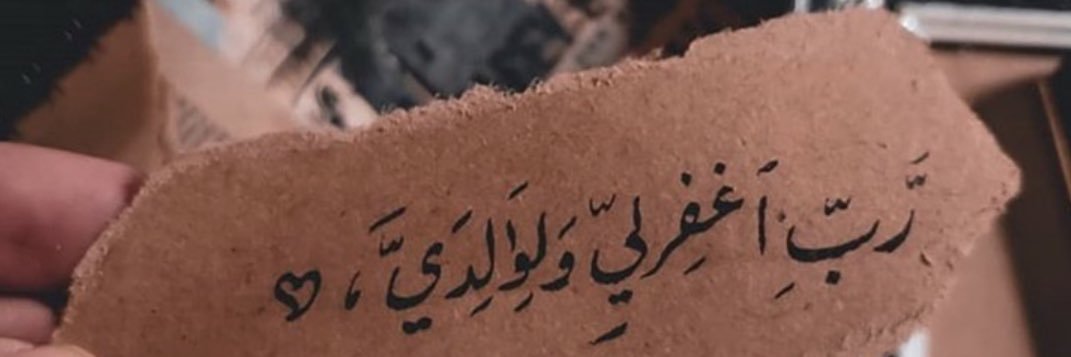 رَّبِّ ٱغْفِرْ لِيّ وَلِوَٰلِدَيَّ ، ♡